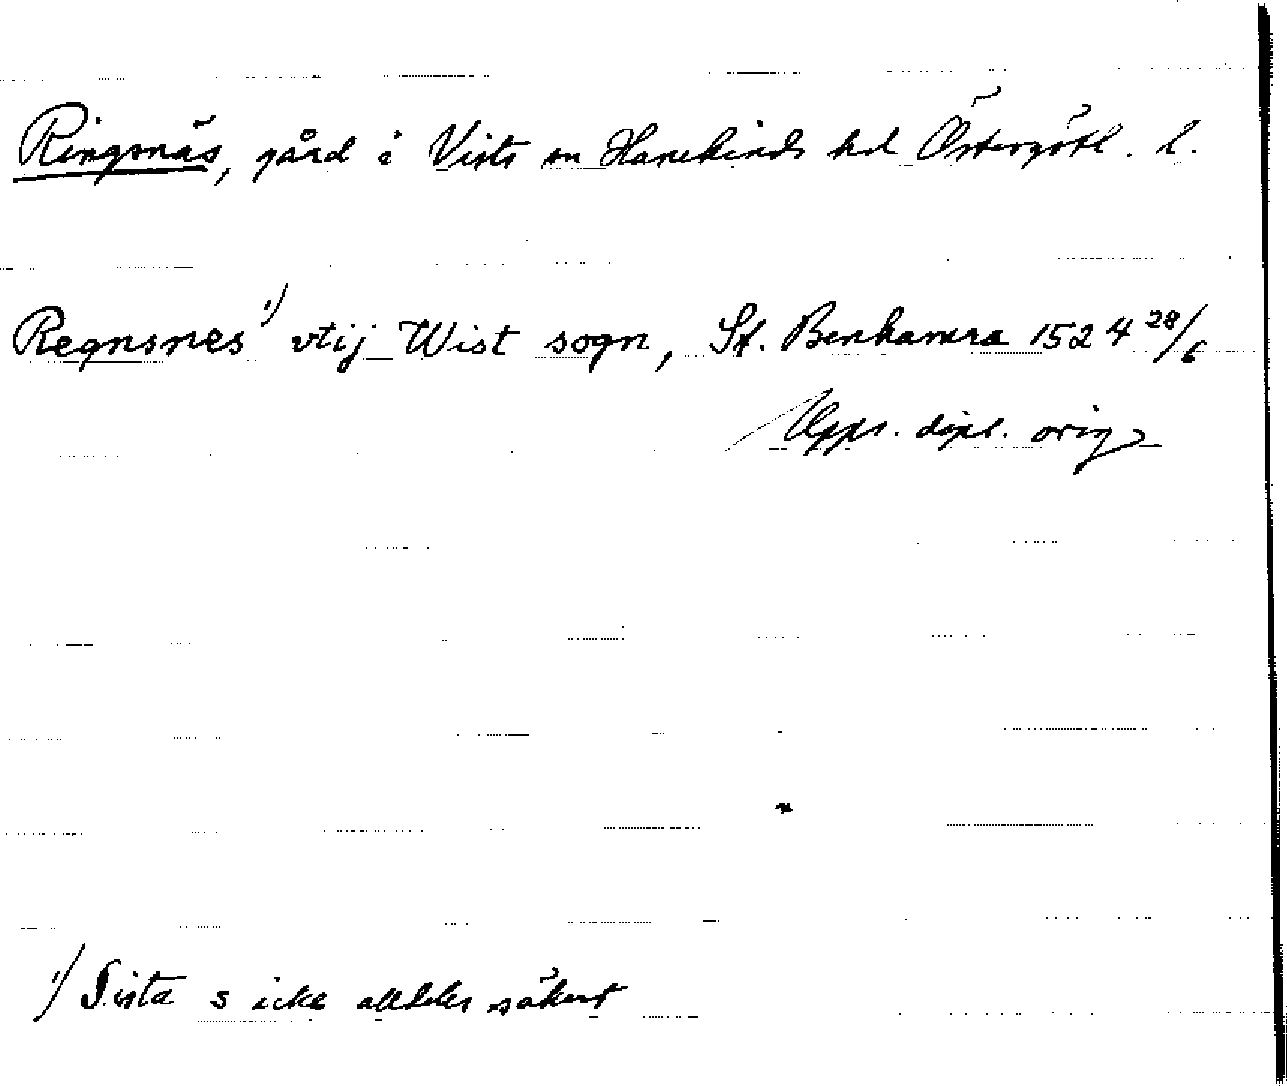 Ringsnäs, gård i Vists sn Hanekinds hd Östergötl. l.
Regnsnes ¹⁾ vtij Wist sogn, St. Benhamra 1524 28/6
Upps. dipl. orig
¹⁾ Sista s icke alldeles säkert